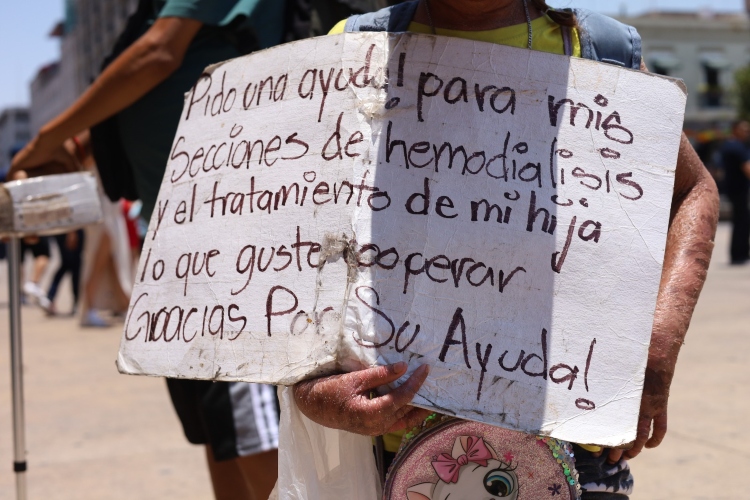 Pido una ayuda! para mis
Secciones de hemodialisis
y el tratamiento de mi hija
lo que guste cooperar
Gracias Por Su Ayuda!